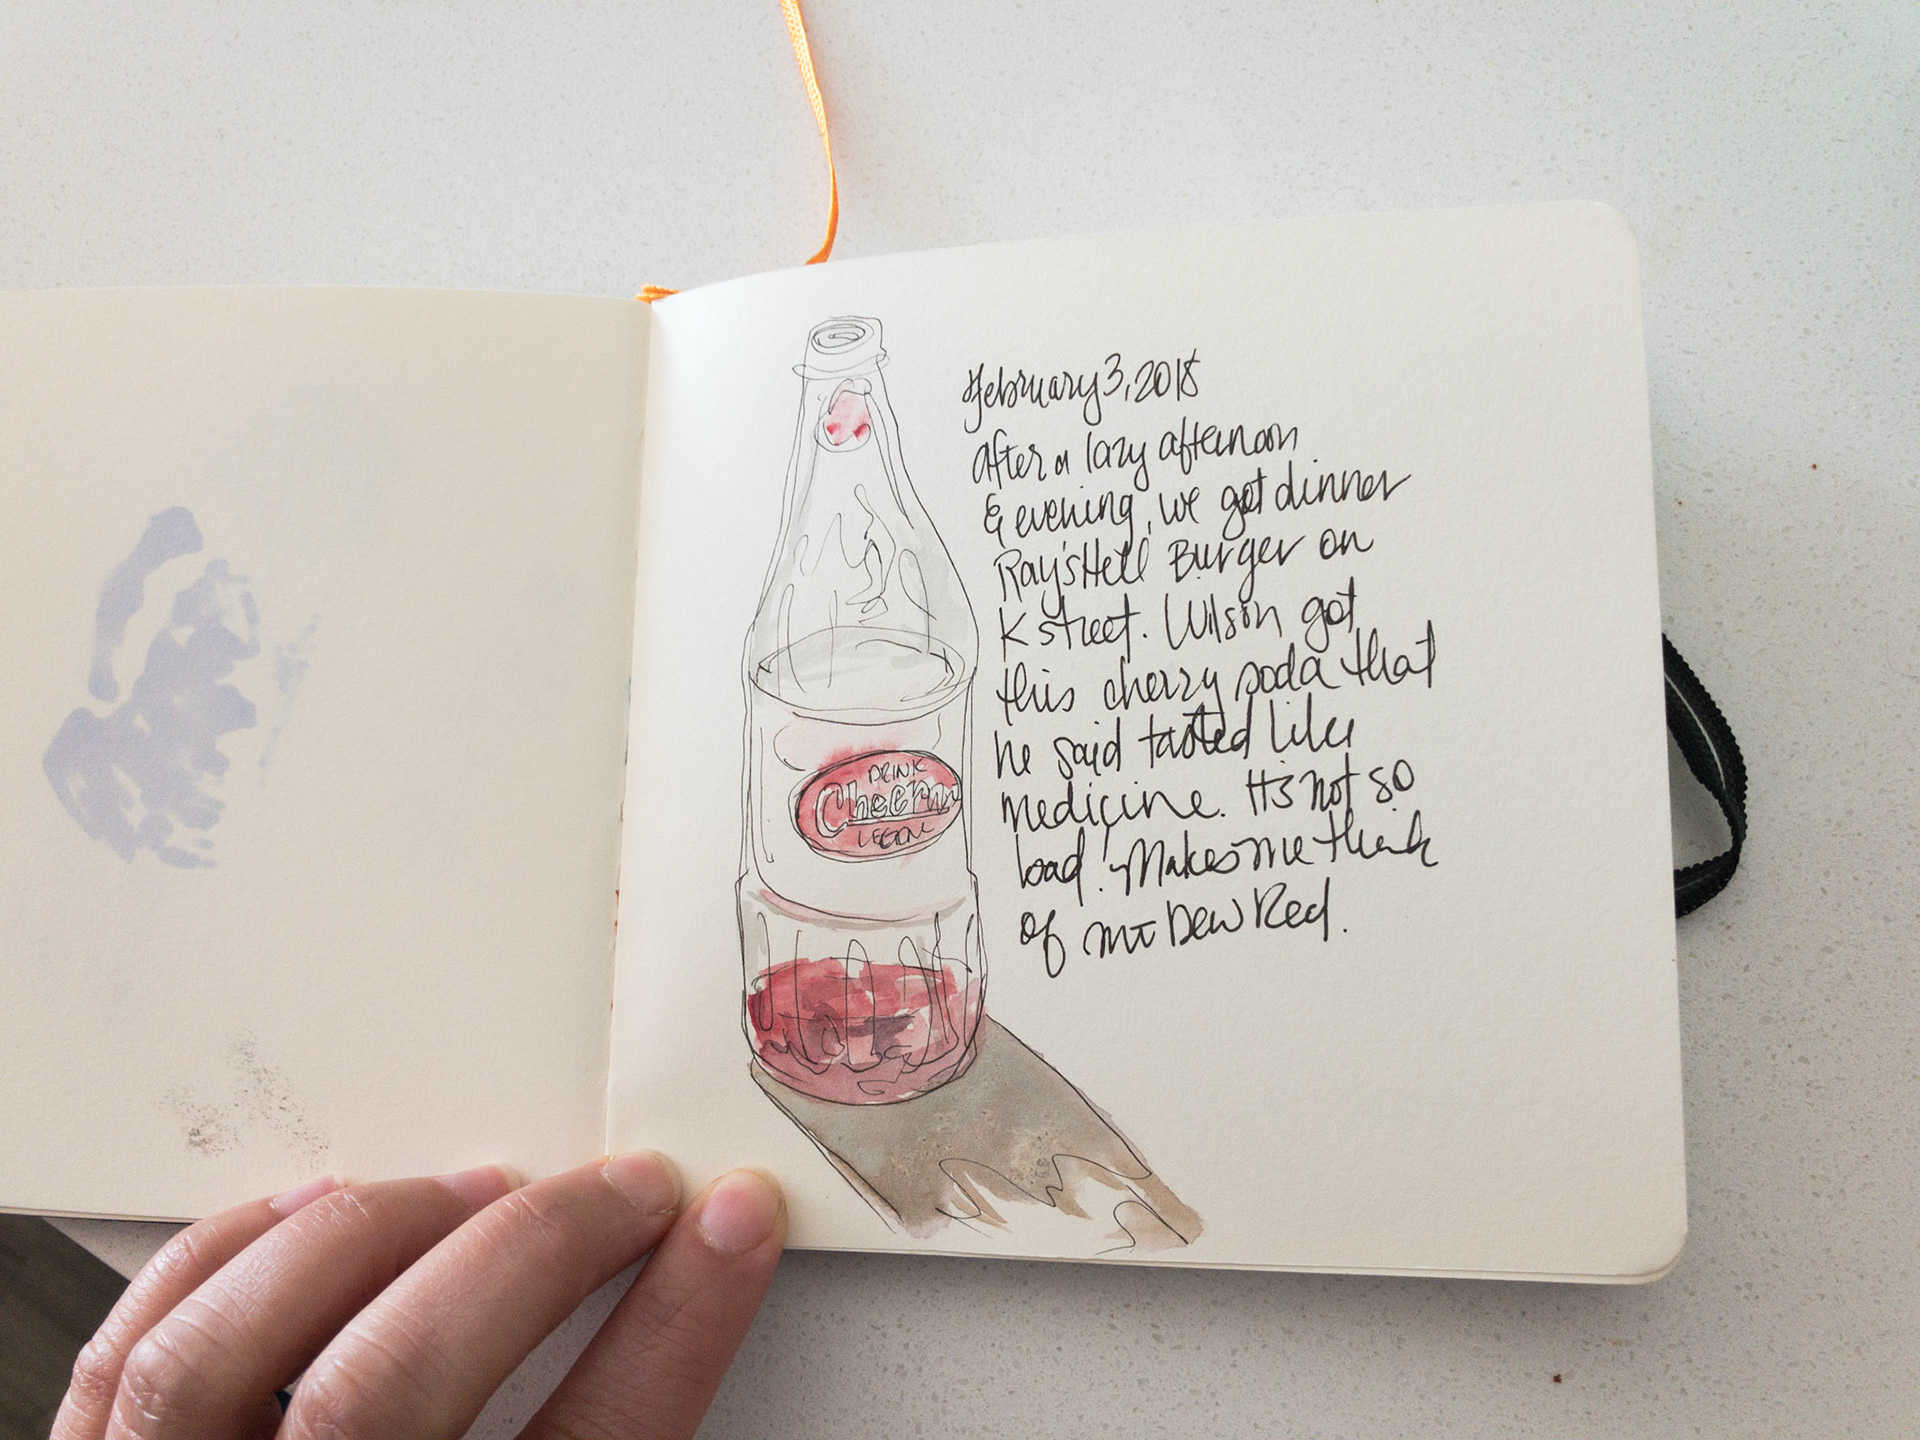 DRINK
Cheerw
LEGEND
February 3, 2018
After a lazy afternoon
& evening, we got dinner
Ray's Hell Burger on
K street. Wilson got
this cherry soda that
he said tasted like
medicine. It's not so
bad! Makes me think
of Mt Dew Red.